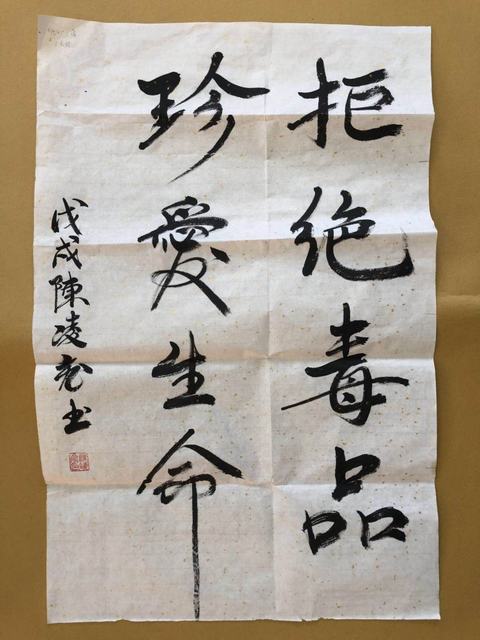 拒绝毒品
珍愛生命
戊戌陳凌書